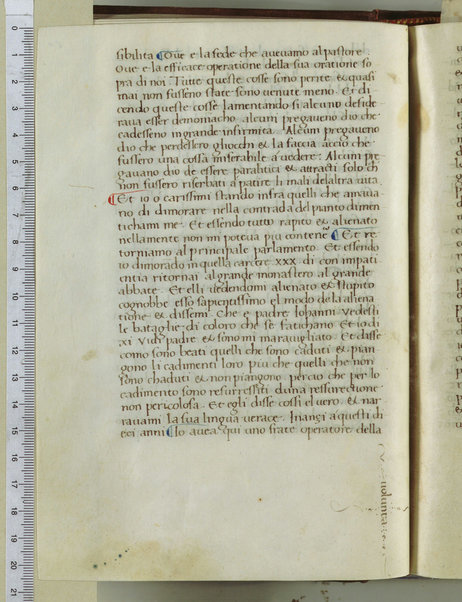 sibilita Oue e la fede che aueuamo al pastore.
Oue e la efficace operatione della sua oratione so
pra di noi. Tutte queste cosse sono perite & quasi
mai non fusseno state sono uenute meno. Et di
cendo queste cosse lamentando si alcuno deside
raua esser demoniacho alcuni pregaueno dio che
cadesseno in grande infirmita. Alcuni pregaueno
dio che perdessero gliocchi & la faccia accio che
fussero una cossa miserabile a uedere: Alcuni pre
gauano dio de essere paralitici & attracti solo ch
non fussero riserbati a patire li mali de laltra uita
Et io o carissimi stando infra quelli che amaua
no di dimorare nella contrada del pianto dimen
tichami me. Et essendo tutto rapito & alienato
nellamente non mi poteua piu contene Et re
torniamo al principale parlamento. Et essendo
io dimorado in quella carcere xxx di con impati
entia ritornai al grande monastero al grande
abbate. Et elli uedendomi alienato & stupito
cognobbe esso sapientissimo el modo dela aliena
tione & dissemi. Che e padre Iohanni Vedesti
le bataglie di coloro che se fatichano Et io di
xi Vidi padre & sono mi marauigliato. Et disse
como sono beati quelli che sono caduti & pian
gono li cadimenti loro piu che quelli che non
sono chaduti & non piangono. percio che per lo
cadimento sono resurressiti duna ressurrectione
non pericolosa. Et egli disse cossi el uero. & nar
rauami la sua lingua uerace. Inanzi a questi di
eci anni Io auea qui uno frate operatore della
uolunta